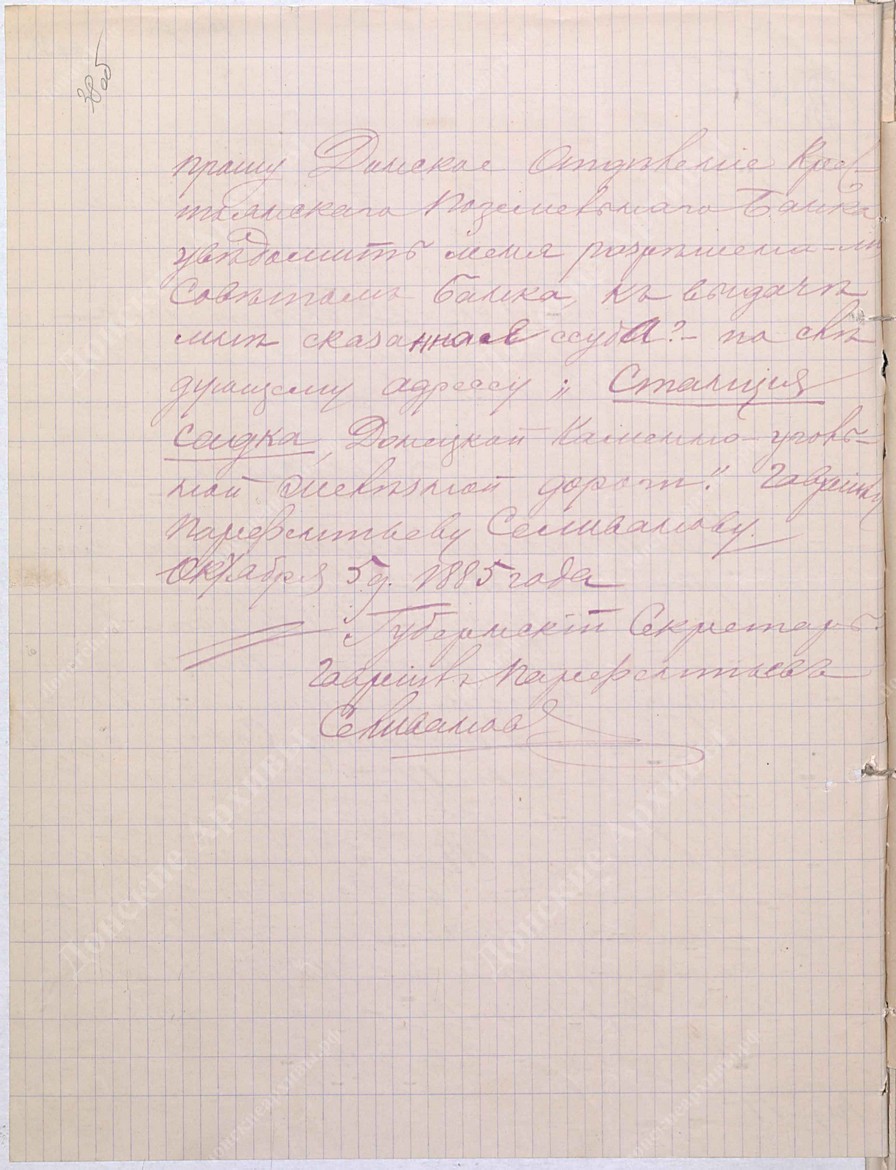 38об
прошу Донское Отдѣленіе Кресть-
тьянскаго Поземельнаго Банка
увѣдомить меня розрѣшена-ли
Совѣтомъ Банка, къ выдачѣ
мнѣ сказанная ссуда?- по слѣ
дующему адрессу: „Станция
садка, Донецкой Каменно-уголь-
ной желѣзной дороги." Гавріилу
Парфентьеву Селиванову.
Октября 5 д. 1885 года
Губернскій Секретарь
Гавріилъ Парфентьевъ
Селивановъ